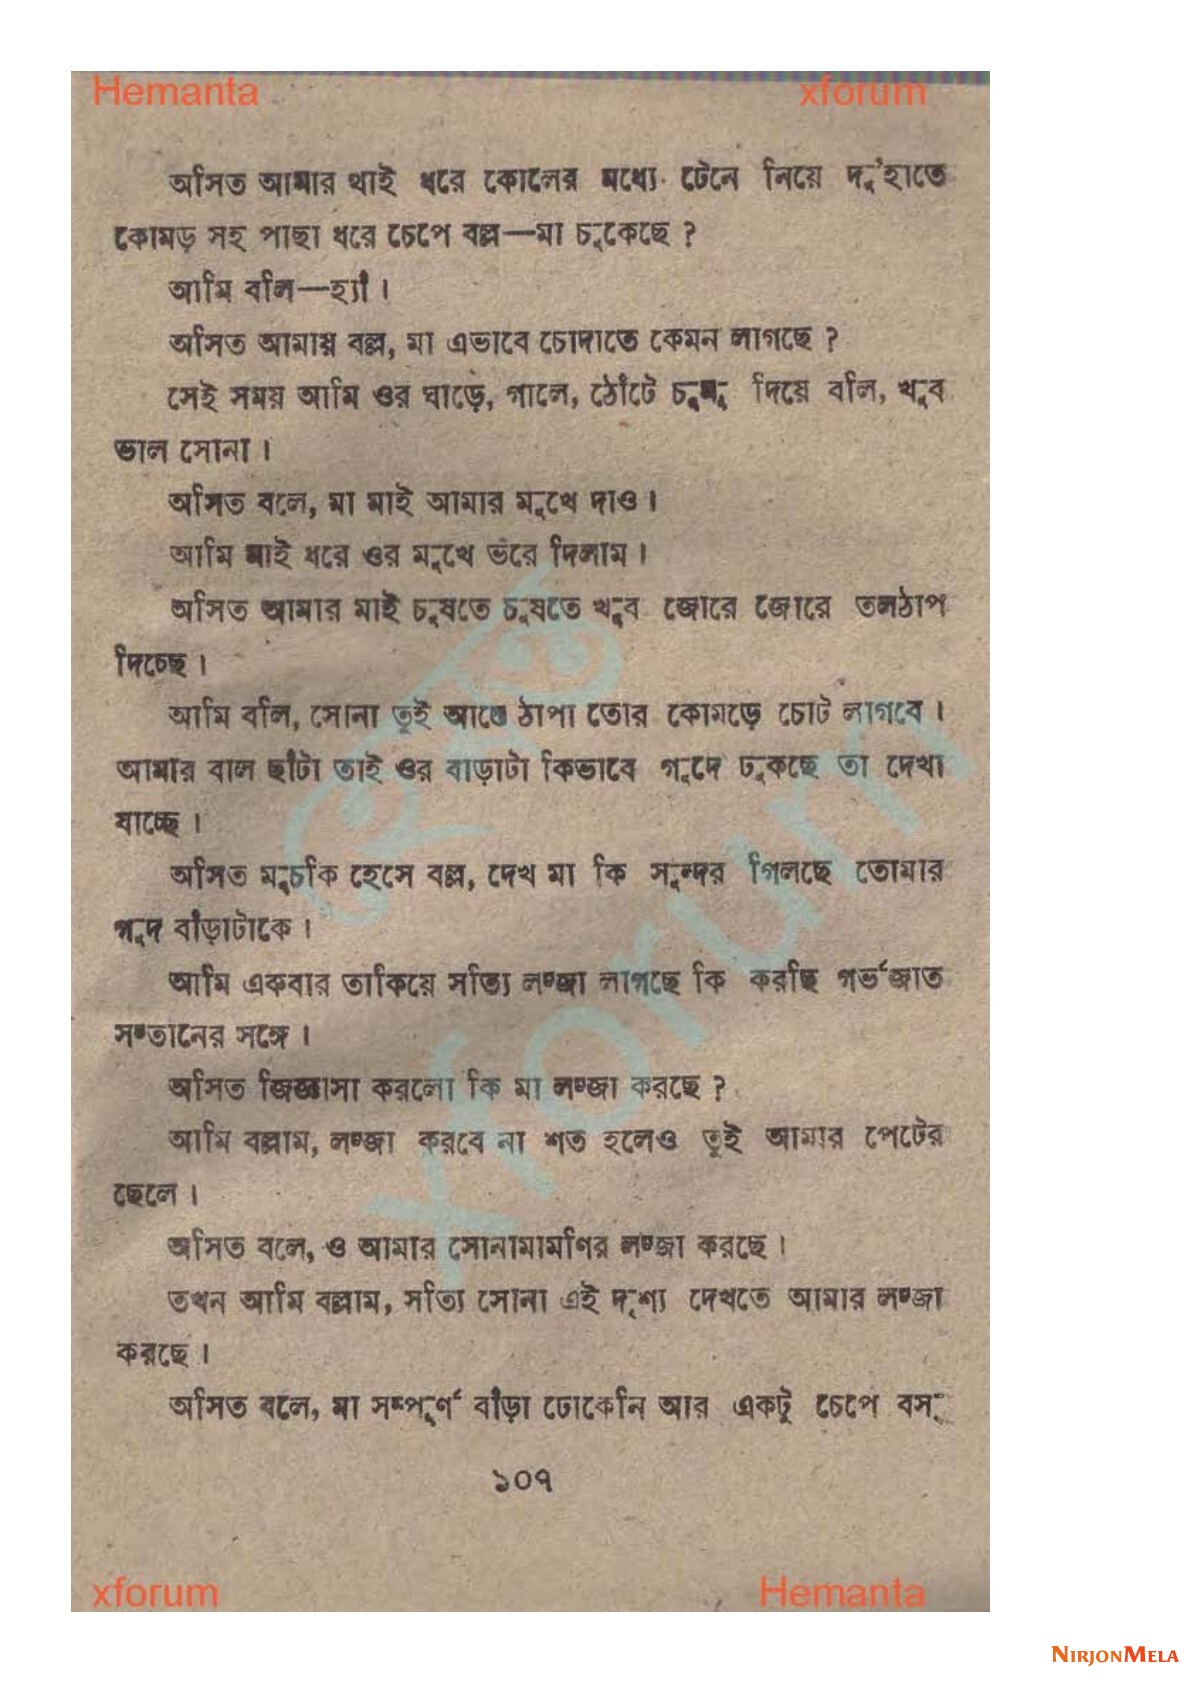 Hemanta xforum
অসিত আমার থাই ধরে কোলের মধ্যে টেনে নিয়ে দু'হাতে
কোমড় সহ পাছা ধরে চেপে বল্ল—মা চুকেছে ?
আমি বলি—হ্যাঁ ।
অসিত আমায় বল্ল, মা এভাবে চোদাতে কেমন লাগছে ?
সেই সময় আমি ওর ঘাড়ে, গালে, ঠোঁটে চুমু দিয়ে বলি, খুব
ভাল সোনা ।
অসিত বলে, মা মাই আমার মুখে দাও ।
আমি মাই ধরে ওর মুখে ভরে দিলাম ।
অসিত আমার মাই চুষতে চুষতে খুব জোরে জোরে তলঠাপ
দিচ্ছে ।
আমি বলি, সোনা তুই আস্তে ঠাপা তোর কোমড়ে চোট লাগবে ।
আমার বাল ছাঁটা তাই ওর বাড়াটা কিভাবে গুদে ঢুকছে তা দেখা
যাচ্ছে ।
অসিত মুচকি হেসে বল্ল, দেখ মা কি সুন্দর গিলছে তোমার
গুদ বাঁড়াটাকে ।
আমি একবার তাকিয়ে সত্যি লজ্জা লাগছে কি করছি গর্ভজাত
সন্তানের সঙ্গে ।
অসিত জিজ্ঞাসা করলো কি মা লজ্জা করছে ?
আমি বল্লাম, লজ্জা করবে না শত হলেও তুই আমার পেটের
ছেলে ।
অসিত বলে, ও আমার সোনামামণির লজ্জা করছে ।
তখন আমি বল্লাম, সত্যি সোনা এই দৃশ্য দেখতে আমার লজ্জা
করছে ।
অসিত বলে, মা সম্পূর্ণ বাঁড়া ঢোকেনি আর একটু চেপে বসু
১০৭
xforum Hemanta
xforum
NIRJONMELA